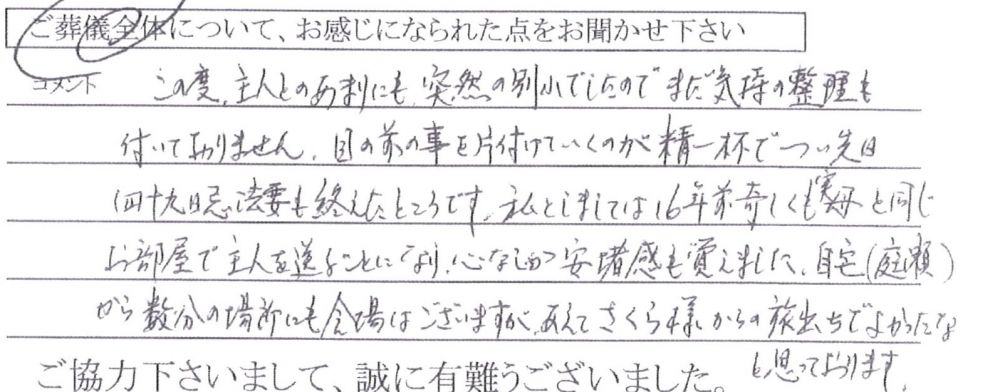 ご葬儀全体について、お感じになられた点をお聞かせ下さい
コメント
この度、主人とのあまりにも突然の別れでしたのでまだ気持の整理も
付いておりません、目の前の事を片付けていくのが精一杯でつい先日
四十九日忌法要も終えたところです、私としましては16年前奇しくも実母と同じ
お部屋で主人を送ることになり、心なしか安堵感も覚えました、自宅(庭瀬)
から数分の場所にも会場はございますが、あえてさくら様からの旅立ちでよかったな
と思っております
ご協力下さいまして、誠に有難うございました。